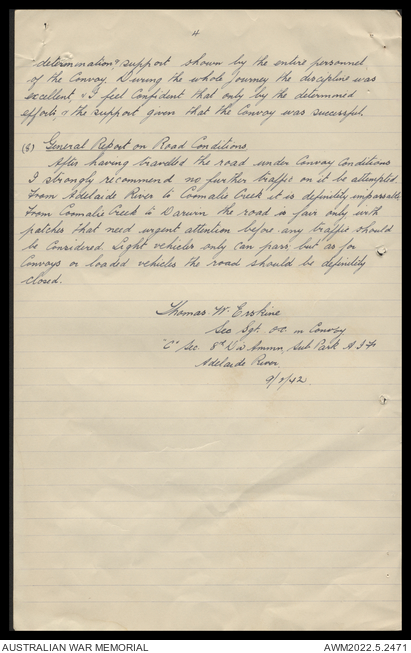 4
"determination & support shown by the entire personnel
of the Convoy. During the whole journey the discipline was
excellent & I feel confident that only by the determined
efforts & the support given that the Convoy was successful.
(8) General Report on Road Conditions
After having travelled the road under Convoy Conditions
I strongly recommend no further traffic on it be attempted.
From Adelaide River to Coomalie Creek it is definitely impassable
From Coomalie Creek to Darwin the road is fair only with
patches that need urgent attention before any traffic should
be Considered. Light vehicles only can pass but as for
Convoys or loaded vehicles the road should be definitely
closed.
Thomas W. Erskine
Sec Sgt. O.C. in Convoy
"C" Sec. 8th Div Ammn. Sub Park A.I.F.
Adelaide River
AUSTRALIAN WAR MEMORIAL
AWM2022.5.2471